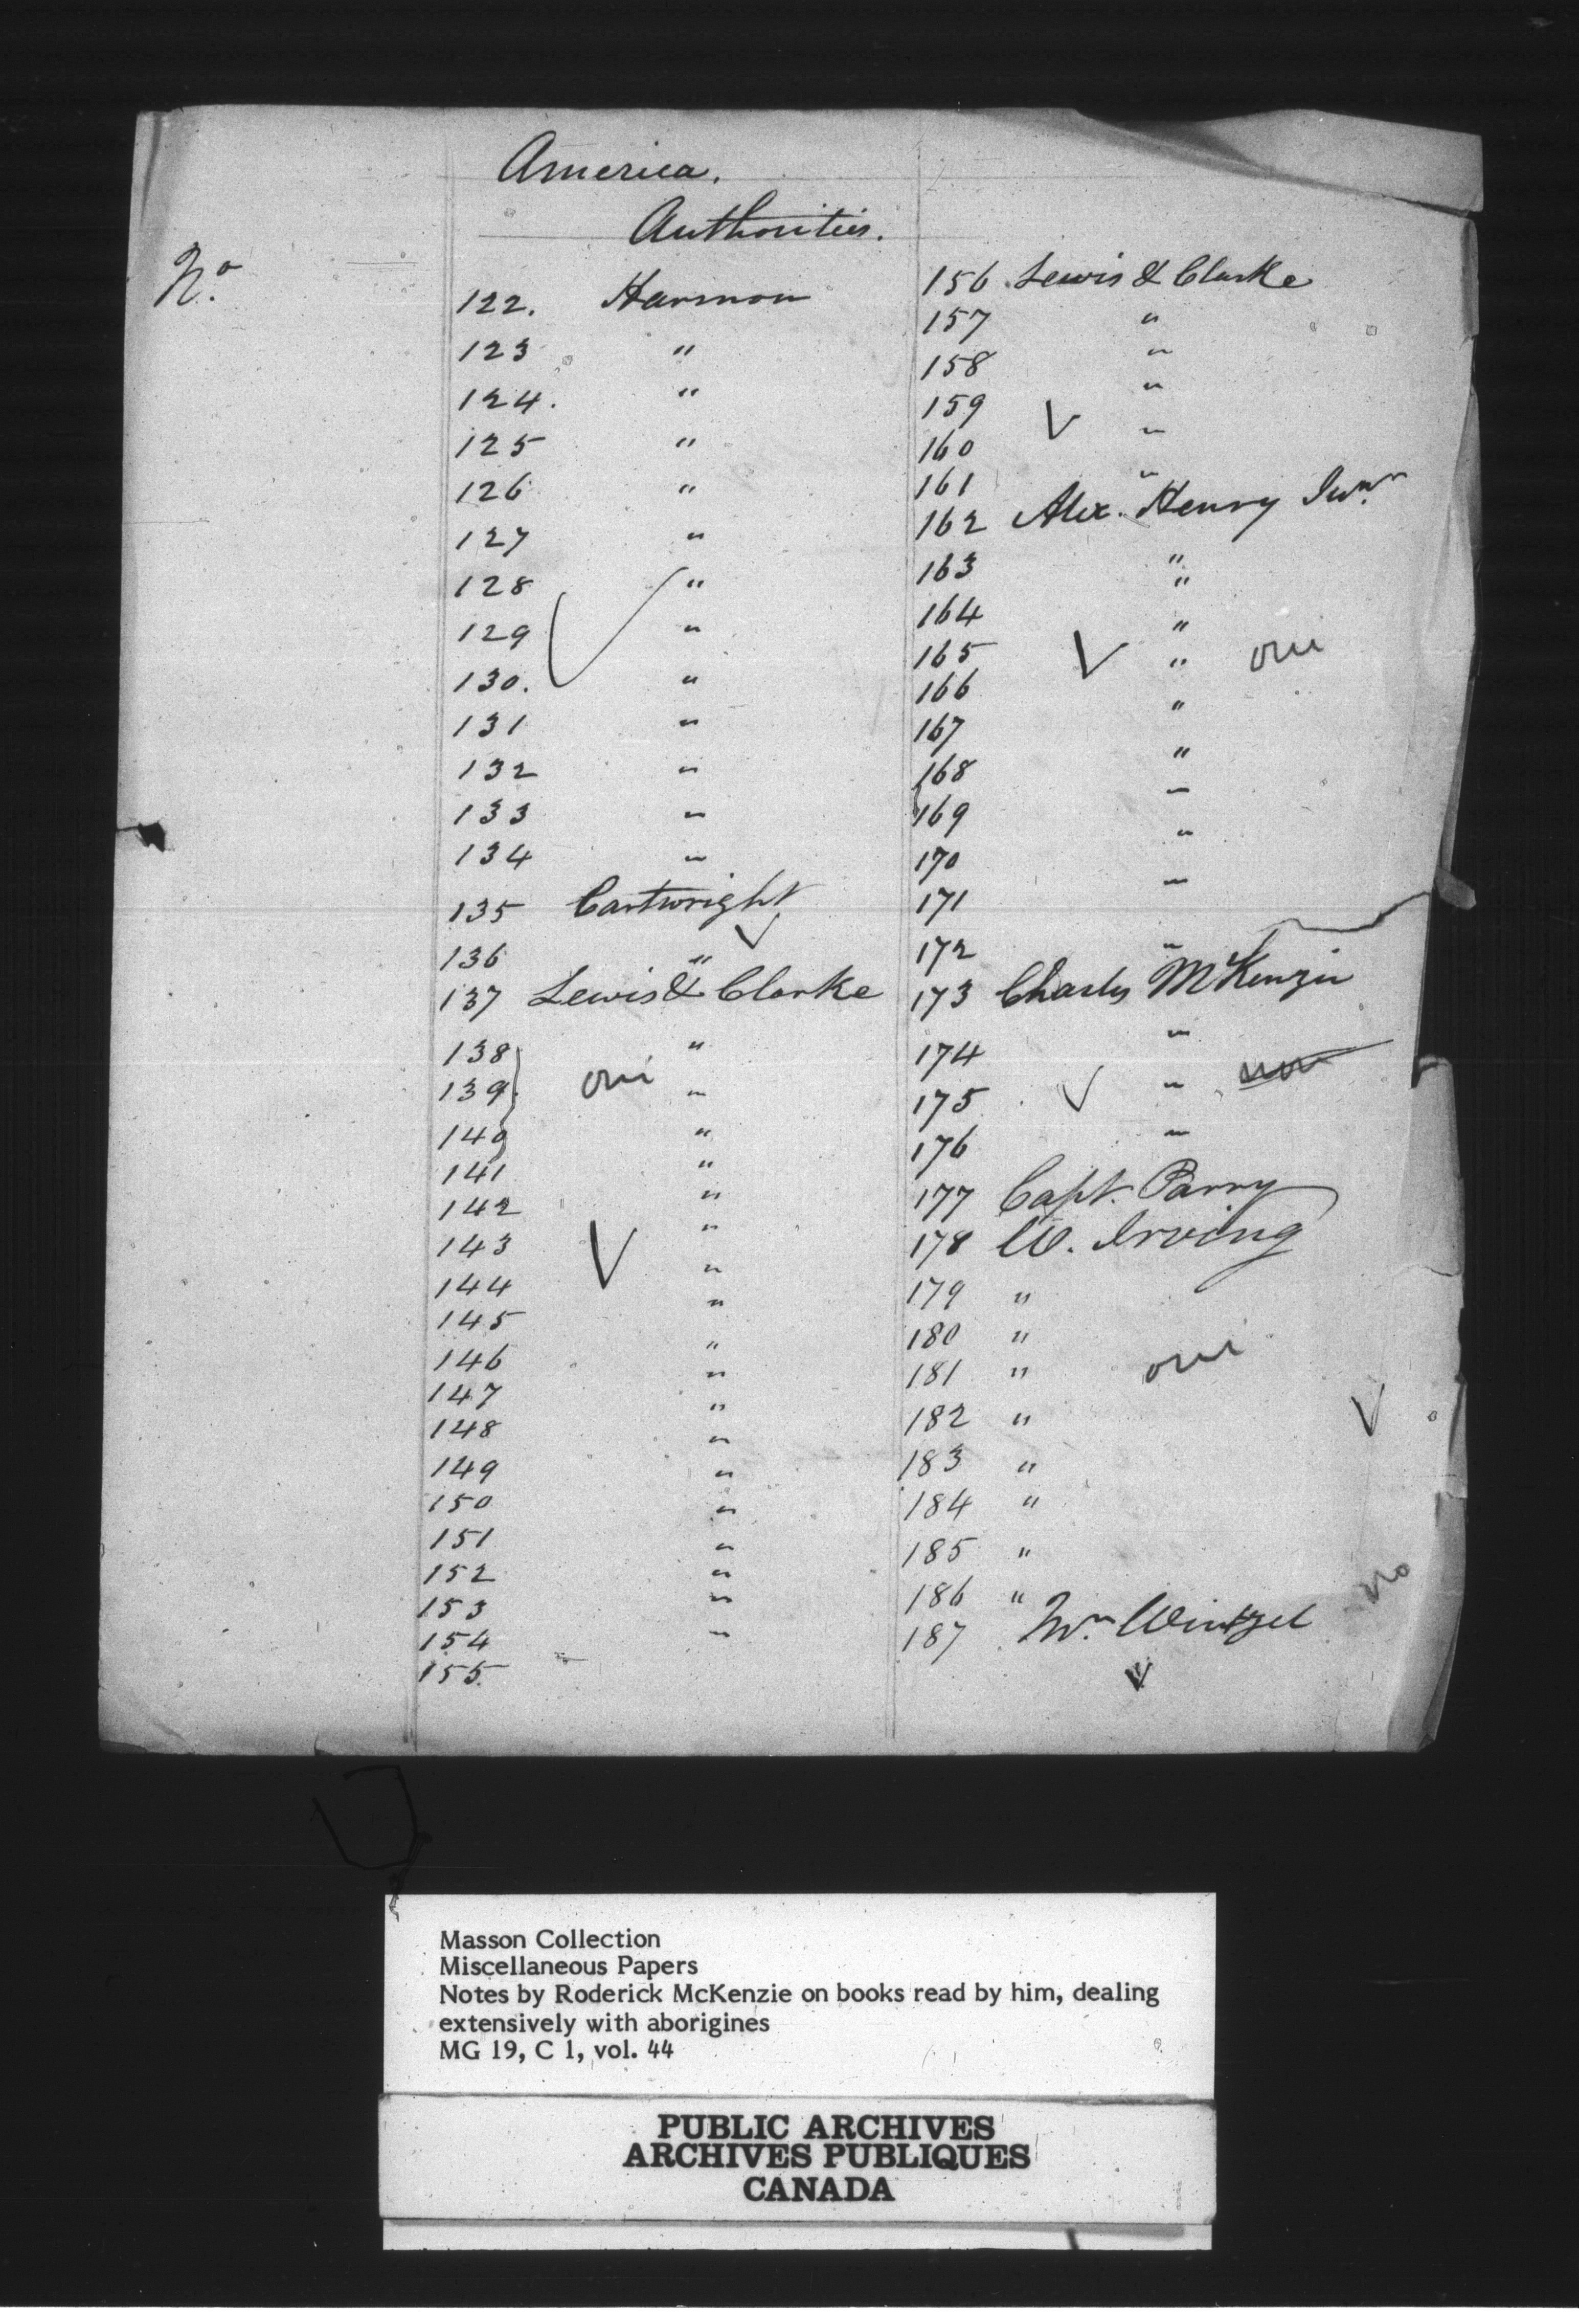 America.
Authorities.
No.
122. Harmon
123 "
124. "
125 "
126 "
127 "
128 "
129 "
130. "
131 "
132 "
133 "
134 "
135 Cartwright
136 "
137 Lewis & Clarke
138 "
139 oui "
140 "
141 "
142 "
143 "
144 "
145 "
146 "
147 "
148 "
149 "
150 "
151 "
152 "
153 "
154 "
155.
156 Lewis & Clarke
157 "
158 "
159 "
160 "
161 "
162 Alex. Henry Junr.
163 "
164 "
165 " oui
166 "
167 "
168 "
169 "
170 "
171 "
172 "
173 Charles McKenzie
174 "
175 "
176 "
177 Capt. Parry
178 W. Irving
179 "
180 "
181 " oui
182 "
183 "
184 "
185 "
186 " no
187 Mr. Wintzel
Masson Collection
Miscellaneous Papers
Notes by Roderick McKenzie on books read by him, dealing
extensively with aborigines
MG 19, C 1, vol. 44
PUBLIC ARCHIVES
ARCHIVES PUBLIQUES
CANADA